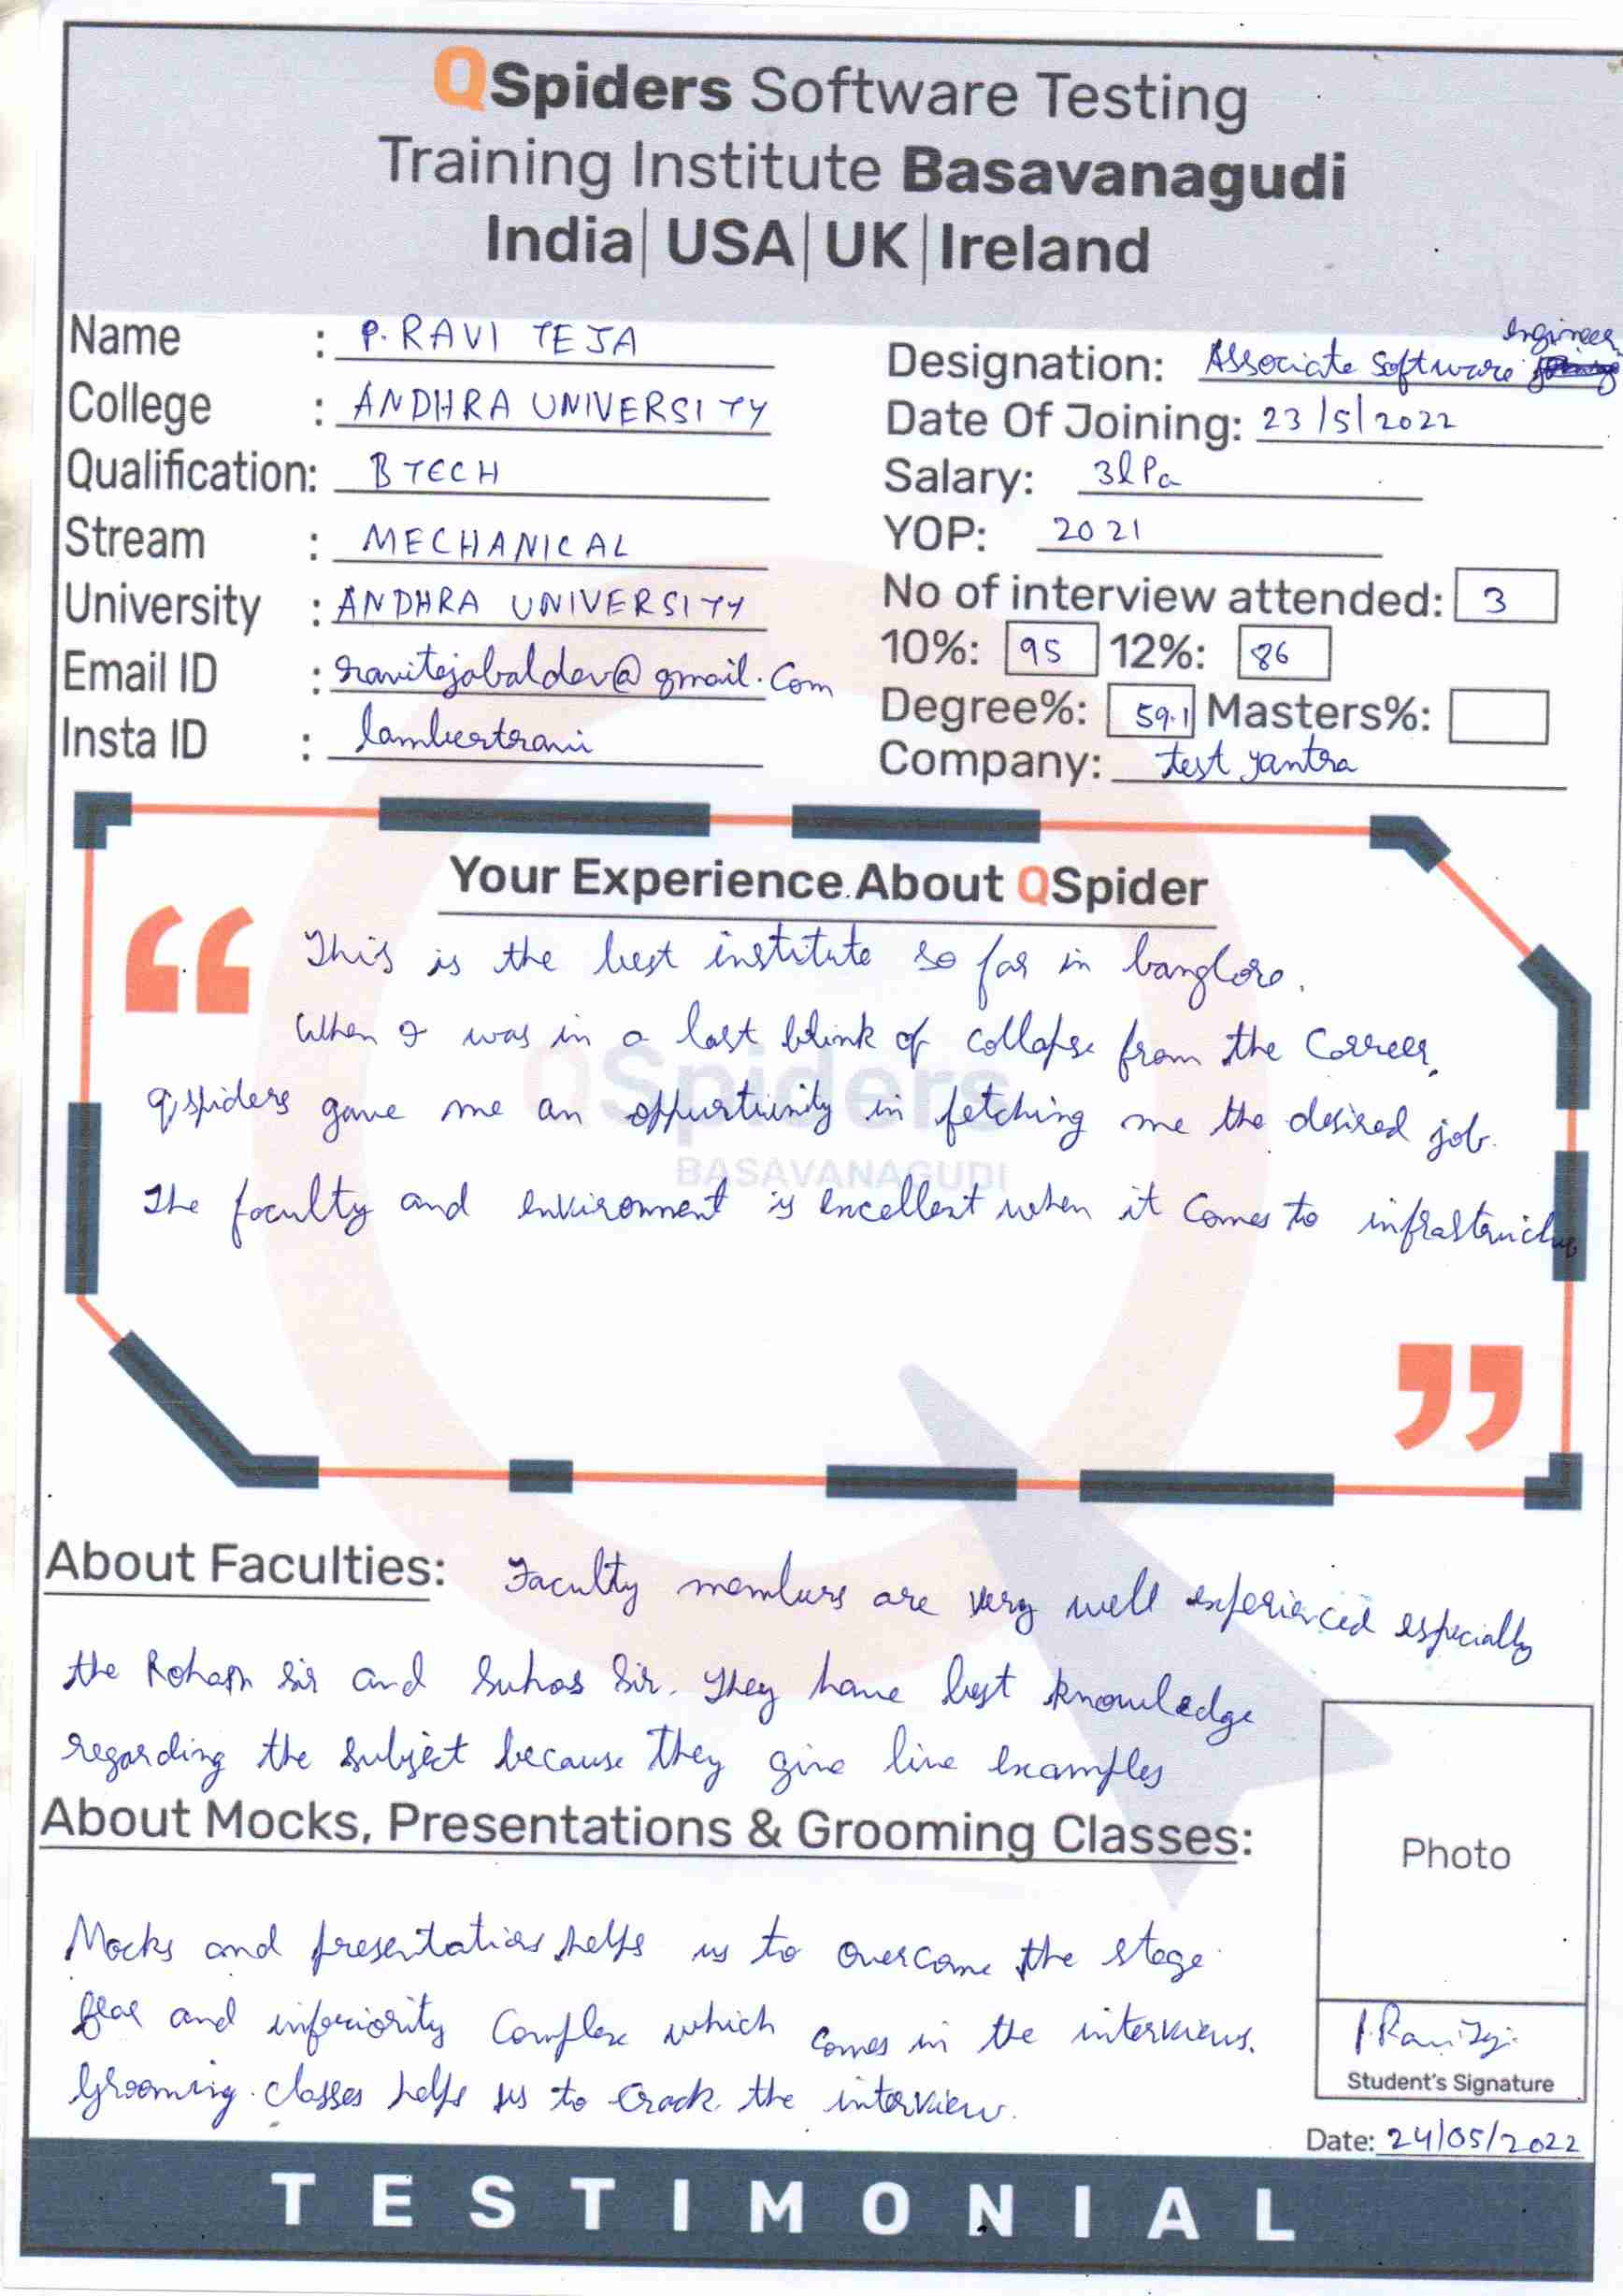 QSpiders Software Testing
Training Institute Basavanagudi
India| USA| UK| Ireland
Name : P. RAVI TEJA
College : ANDHRA UNIVERSITY
Qualification: B TECH
Stream : MECHANICAL
University : ANDHRA UNIVERSITY
Email ID : ravitejabaldev@gmail.com
Insta ID : lambertravi
Designation: Associate Software Engineer
Date Of Joining: 23/5/2022
Salary: 3lPa
YOP: 2021
No of interview attended: 3
10%: 95 12%: 86
Degree%: 59.1 Masters%:
Company: test yantra
Your Experience About QSpider
This is the best institute so far in banglore.
When I was in a last blink of collapse from the Carreer,
qspiders gave me an oppurtunity in fetching me the desired job.
QSpiders
BASAVANAGUDI
The faculty and enviironment is excellent when it comes to infrastructure
About Faculties: Faculty members are very well experienced especially
the Rohan sir and Suhas Sir. They have best knowledge
regarding the subject because they give live examples
About Mocks, Presentations & Grooming Classes:
Mocks and presentations helps us to overcome the stage
fear and inferiority complex which comes in the interviews.
Grooming classes helps us to crack the interview.
Photo
P. Ravi Teja
Student's Signature
Date: 24/05/2022
TESTIMONIAL